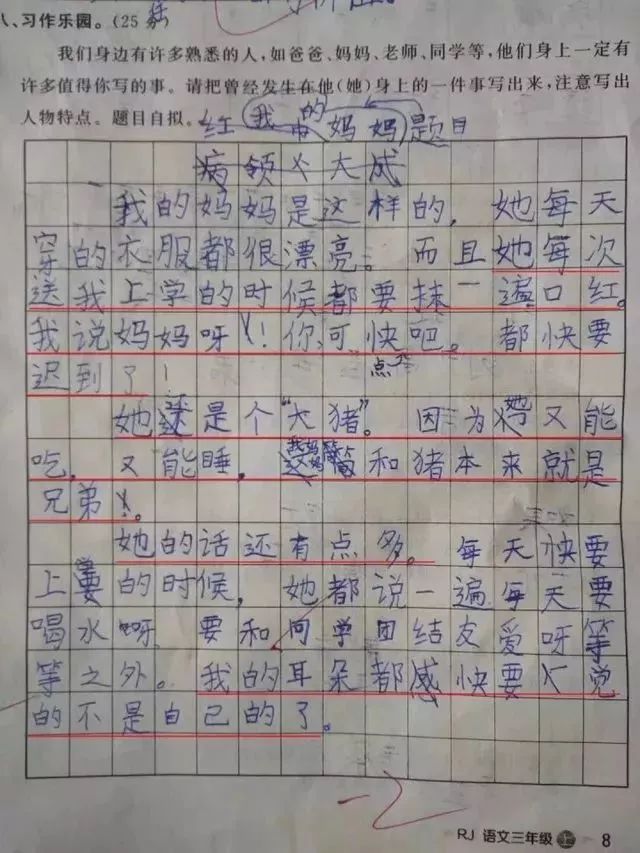 八、习作乐园。(25分)
我们身边有许多熟悉的人,如爸爸、妈妈、老师、同学等,他们身上一定有
许多值得你写的事。请把曾经发生在他(她)身上的一件事写出来,注意写出
人物特点。题目自拟。
红我的妈妈题目
我的妈妈是这样的,她每天
穿的衣服都很漂亮。而且她每次
送我上学的时候都要抹一遍口红。
我说妈妈呀!你可快点吧。都快要
迟到了!
她还是个“大猪”。因为她又能
吃,又能睡,我妈妈等等和猪本来就是
兄弟。
她的话还有点多。每天快要
上学的时候,她都说一遍每天要
喝水呀要和同学团结友爱呀等
等之外。我的耳朵都感快要觉
的不是自己的了。
RJ 语文三年级 上 8